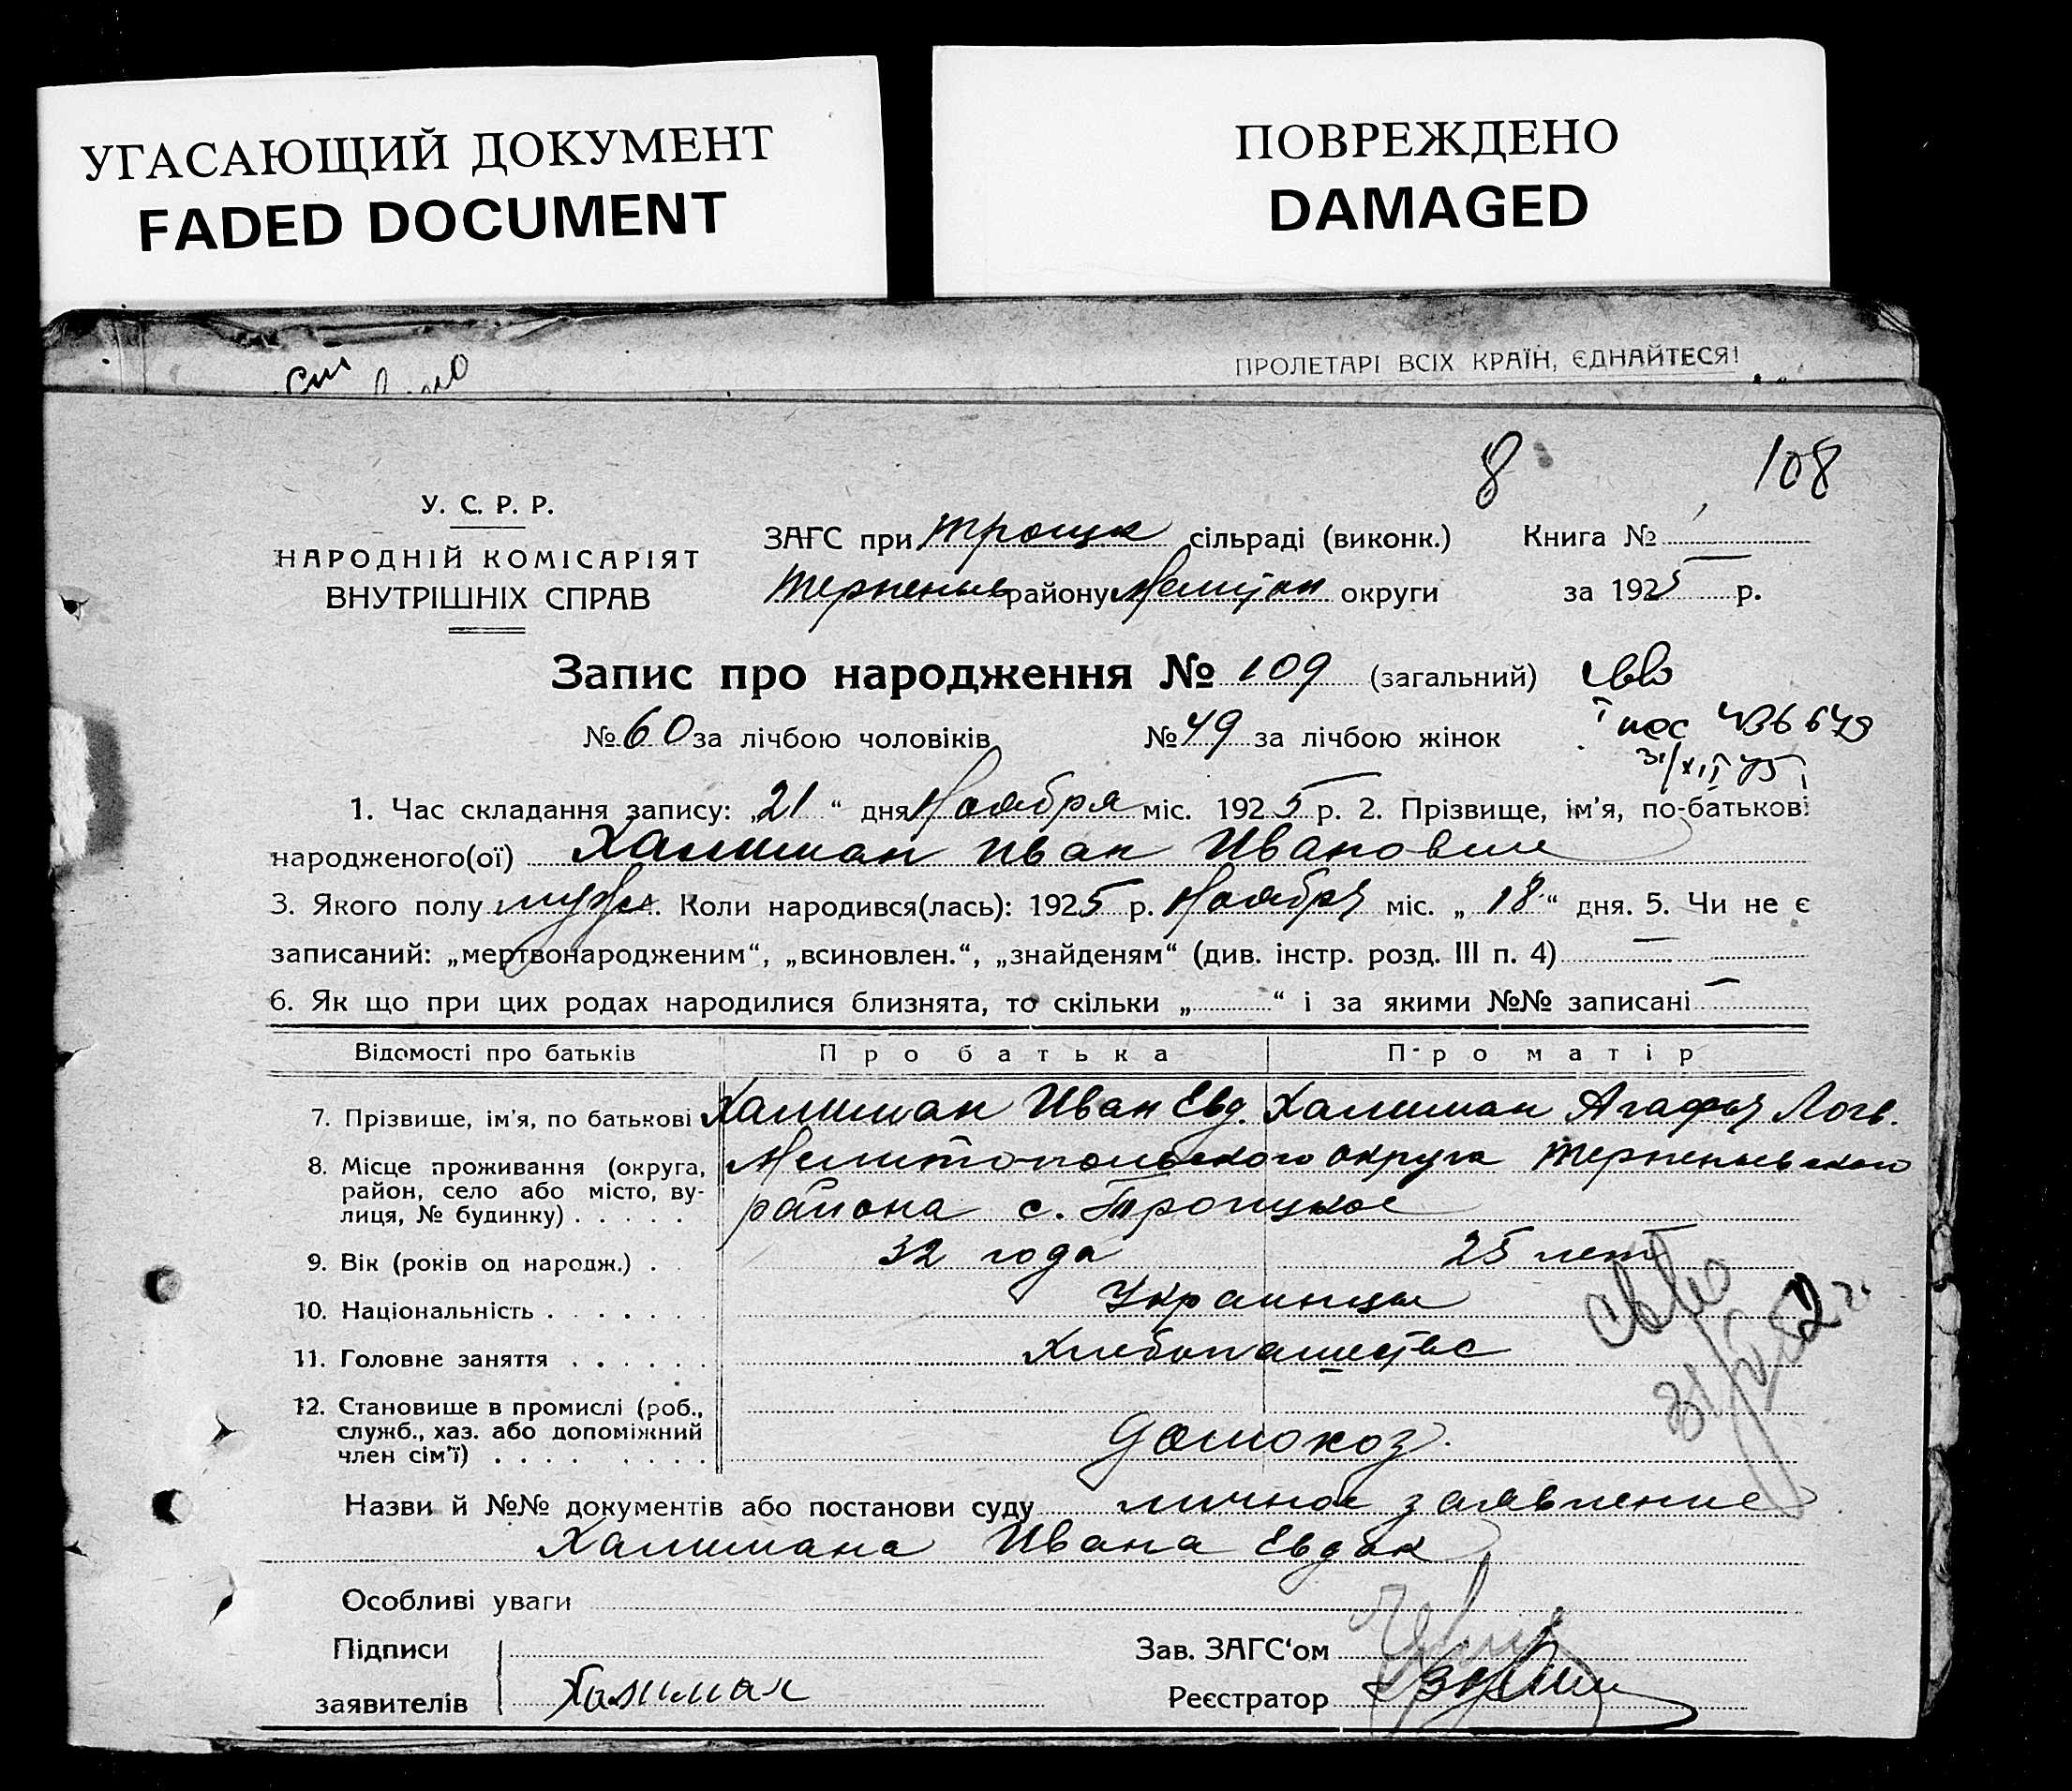 УГАСАЮЩИЙ ДОКУМЕНТ
FADED DOCUMENT
ПОВРЕЖДЕНО
DAMAGED
ПРОЛЕТАРІ ВСІХ КРАЇН, ЄДНАЙТЕСЯ!
8 108
У. С. Р. Р.
НАРОДНІЙ КОМІСАРІЯТ
ВНУТРІШНІХ СПРАВ
ЗАГС при Троицк сільраді (виконк.) Книга №
Терпеньев району Мелитоп округи за 1925 р.
Запис про народження № 109 (загальний)
№ 60 за лічбою чоловіків № 49 за лічбою жінок
1. Час складання запису: „21“ дня Ноября міс. 1925 р. 2. Прізвище, ім'я, по-батькові
народженого(ої) Халиман Иван Иванович
3. Якого полу муж. Коли народився(лась): 1925 р. Ноября міс. „18“ дня. 5. Чи не є
записаний: „мертвонародженим“, „всиновлен.“, „знайденям“ (див. інстр. розд. III п. 4) —
6. Як що при цих родах народилися близнята, то скільки „ “ і за якими №№ записані —
Відомості про батьків Про батька Про матір
7. Прізвище, ім'я, по батькові Халиман Иван Евд. Халиман Агафья Логв.
8. Місце проживання (округа, район, село або місто, вулиця, № будинку) Мелитопольского округа Терпеньевского
района с. Троицкое
9. Вік (років од народж.) 32 года 25 лет
10. Національність Украинцы
11. Головне заняття Хлебопашество
12. Становище в промислі (роб.,
служб., хаз. або допоміжний
член сім'ї) домохоз.
Назви й №№ документів або постанови суду личное заявление
Халимана Ивана Евдок
Особливі уваги
Підписи
заявителів Халиман
Зав. ЗАГС‘ом
Реєстратор